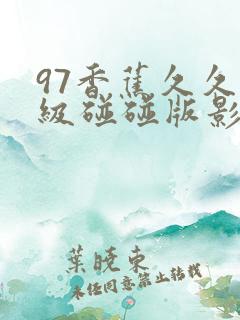 97香蕉久久
級碰碰版影
葉曉東
未任同意禁止转载